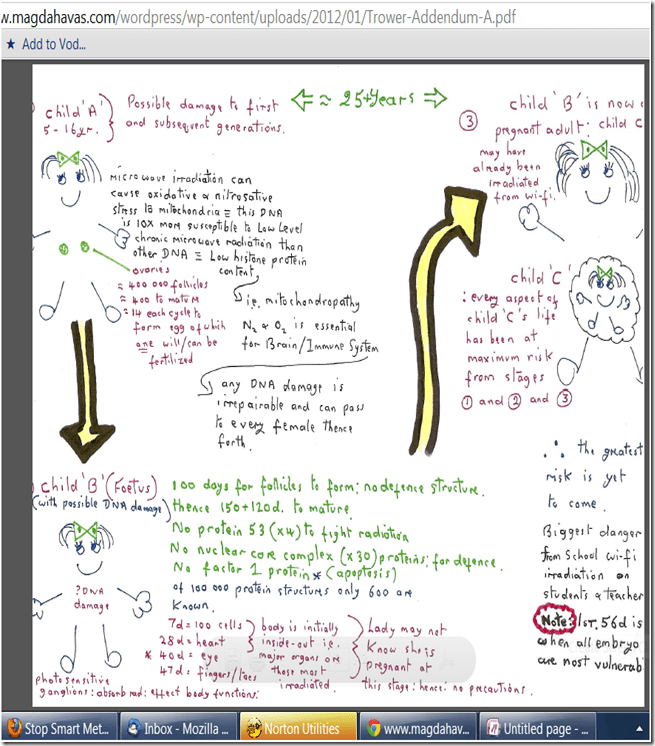 w.magdahavas.com/wordpress/wp-content/uploads/2012/01/Trower-Addendum-A.pdf
Add to Vod...
child 'A'
5-16yr.
Possible damage to first
and subsequent generations.
≈ 25+years
microwave irradiation can
cause oxidative & nitrosative
stress to mitochondria ≡ this DNA
is 10x more susceptible to Low Level
chronic microwave radiation than
other DNA ≡ Low histone protein
content,
ovaries
≈ 400 000 follicles
≈ 400 to mature
≈ 14 each cycle to
form egg of which
one will/can be
fertilized
i.e. mitochondropathy
N₂ & O₂ is essential
for Brain/Immune System
any DNA damage is
irrepairable and can pass
to every female thence
forth.
③
child 'B' is now a
pregnant adult: child C
may have
already been
irradiated
from wi-fi.
child 'C'
: every aspect of
child 'C's life
has been at
maximum risk
from stages
① and ② and ③
child 'B' (Foetus)
(with possible DNA damage)
?DNA
damage
100 days for follicles to form: no defence structure.
thence 150+120d. to mature
No protein 53 (x4) to fight radiation
No nuclear core complex (x30) proteins: for defence.
No factor 1 protein * (apoptosis)
of 100 000 protein structures only 600 are
known.
7d = 100 cells
28d = heart
* 40d = eye
47d = fingers/toes
body is initially
inside-out i.e.
major organs are
those most
irradiated.
Lady may not
know she is
pregnant at
this stage: hence: no precautions.
photosensitive
ganglions: absorb rad: effect body functions.
∴ the greatest
risk is yet
to come.
Biggest danger
from School wi-fi
irradiation on
students & teacher
Note: 1ST. 56d is
when all embryo
are most vulnerab
Stop Smart Met...
Inbox - Mozilla ...
Norton Utilities
www.magdahav...
Untitled page - ...